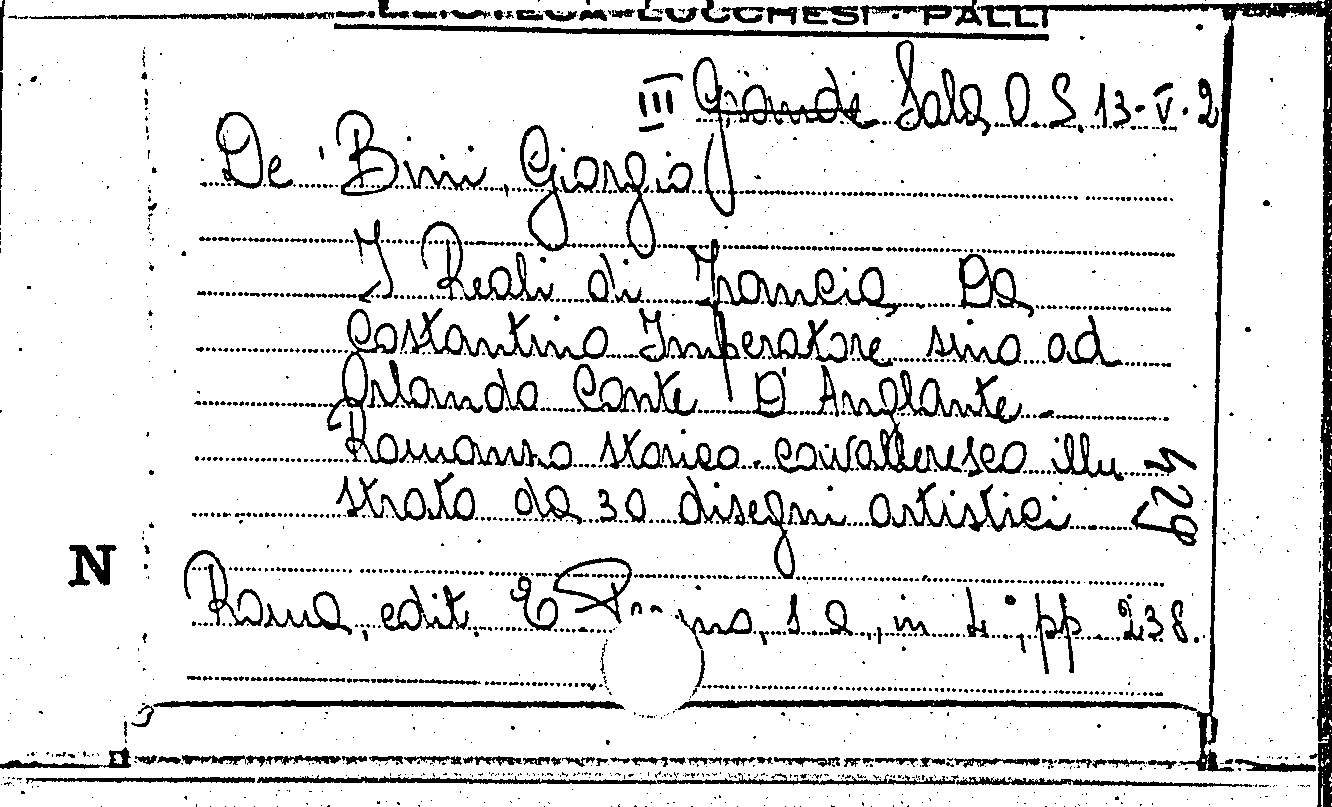 LUCCHESI - PALLI
III Grande Sala O. S. 13-V-2
De' Bini, Giorgio
I Reali di Francia Da
Costantino Imperatore sino ad
Orlando Conte D'Anglante -
Romanzo storico-cavalleresco illu
strato da 30 disegni artistici
N
Roma, edit. E. s. a., in 4°, pp. 238.